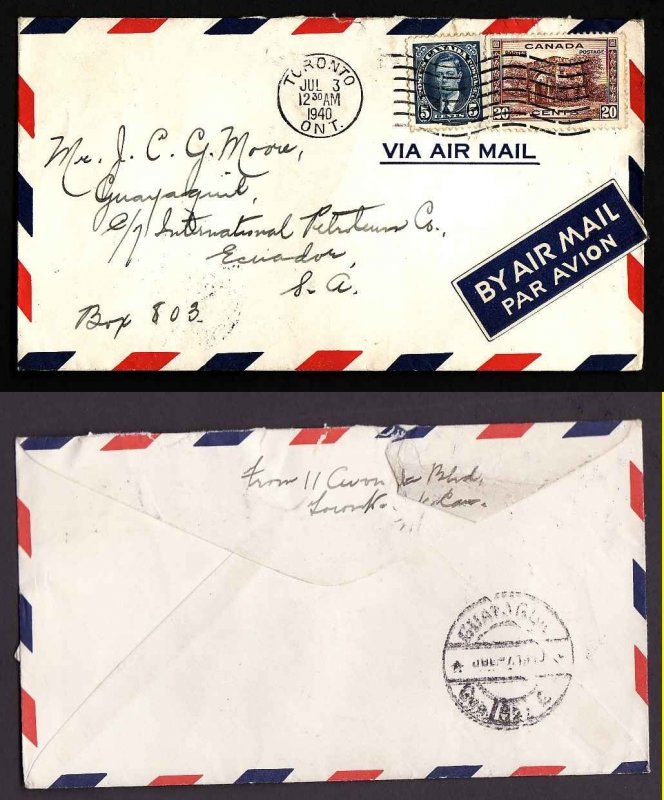 TORONTO
JUL 3
12 30 AM
1940
ONT.
POSTES CANADA
5 CENTS 5
CANADA
POSTES POSTAGE
20 CENTS 20
VIA AIR MAIL
Mr. J. C. G. Moore,
Guayaquil,
c/o International Petroleum Co.,
Ecuador,
S. A.
Box 803
BY AIR MAIL
PAR AVION
From 11 Blvd.
Toronto Can.
GUAYAQUIL